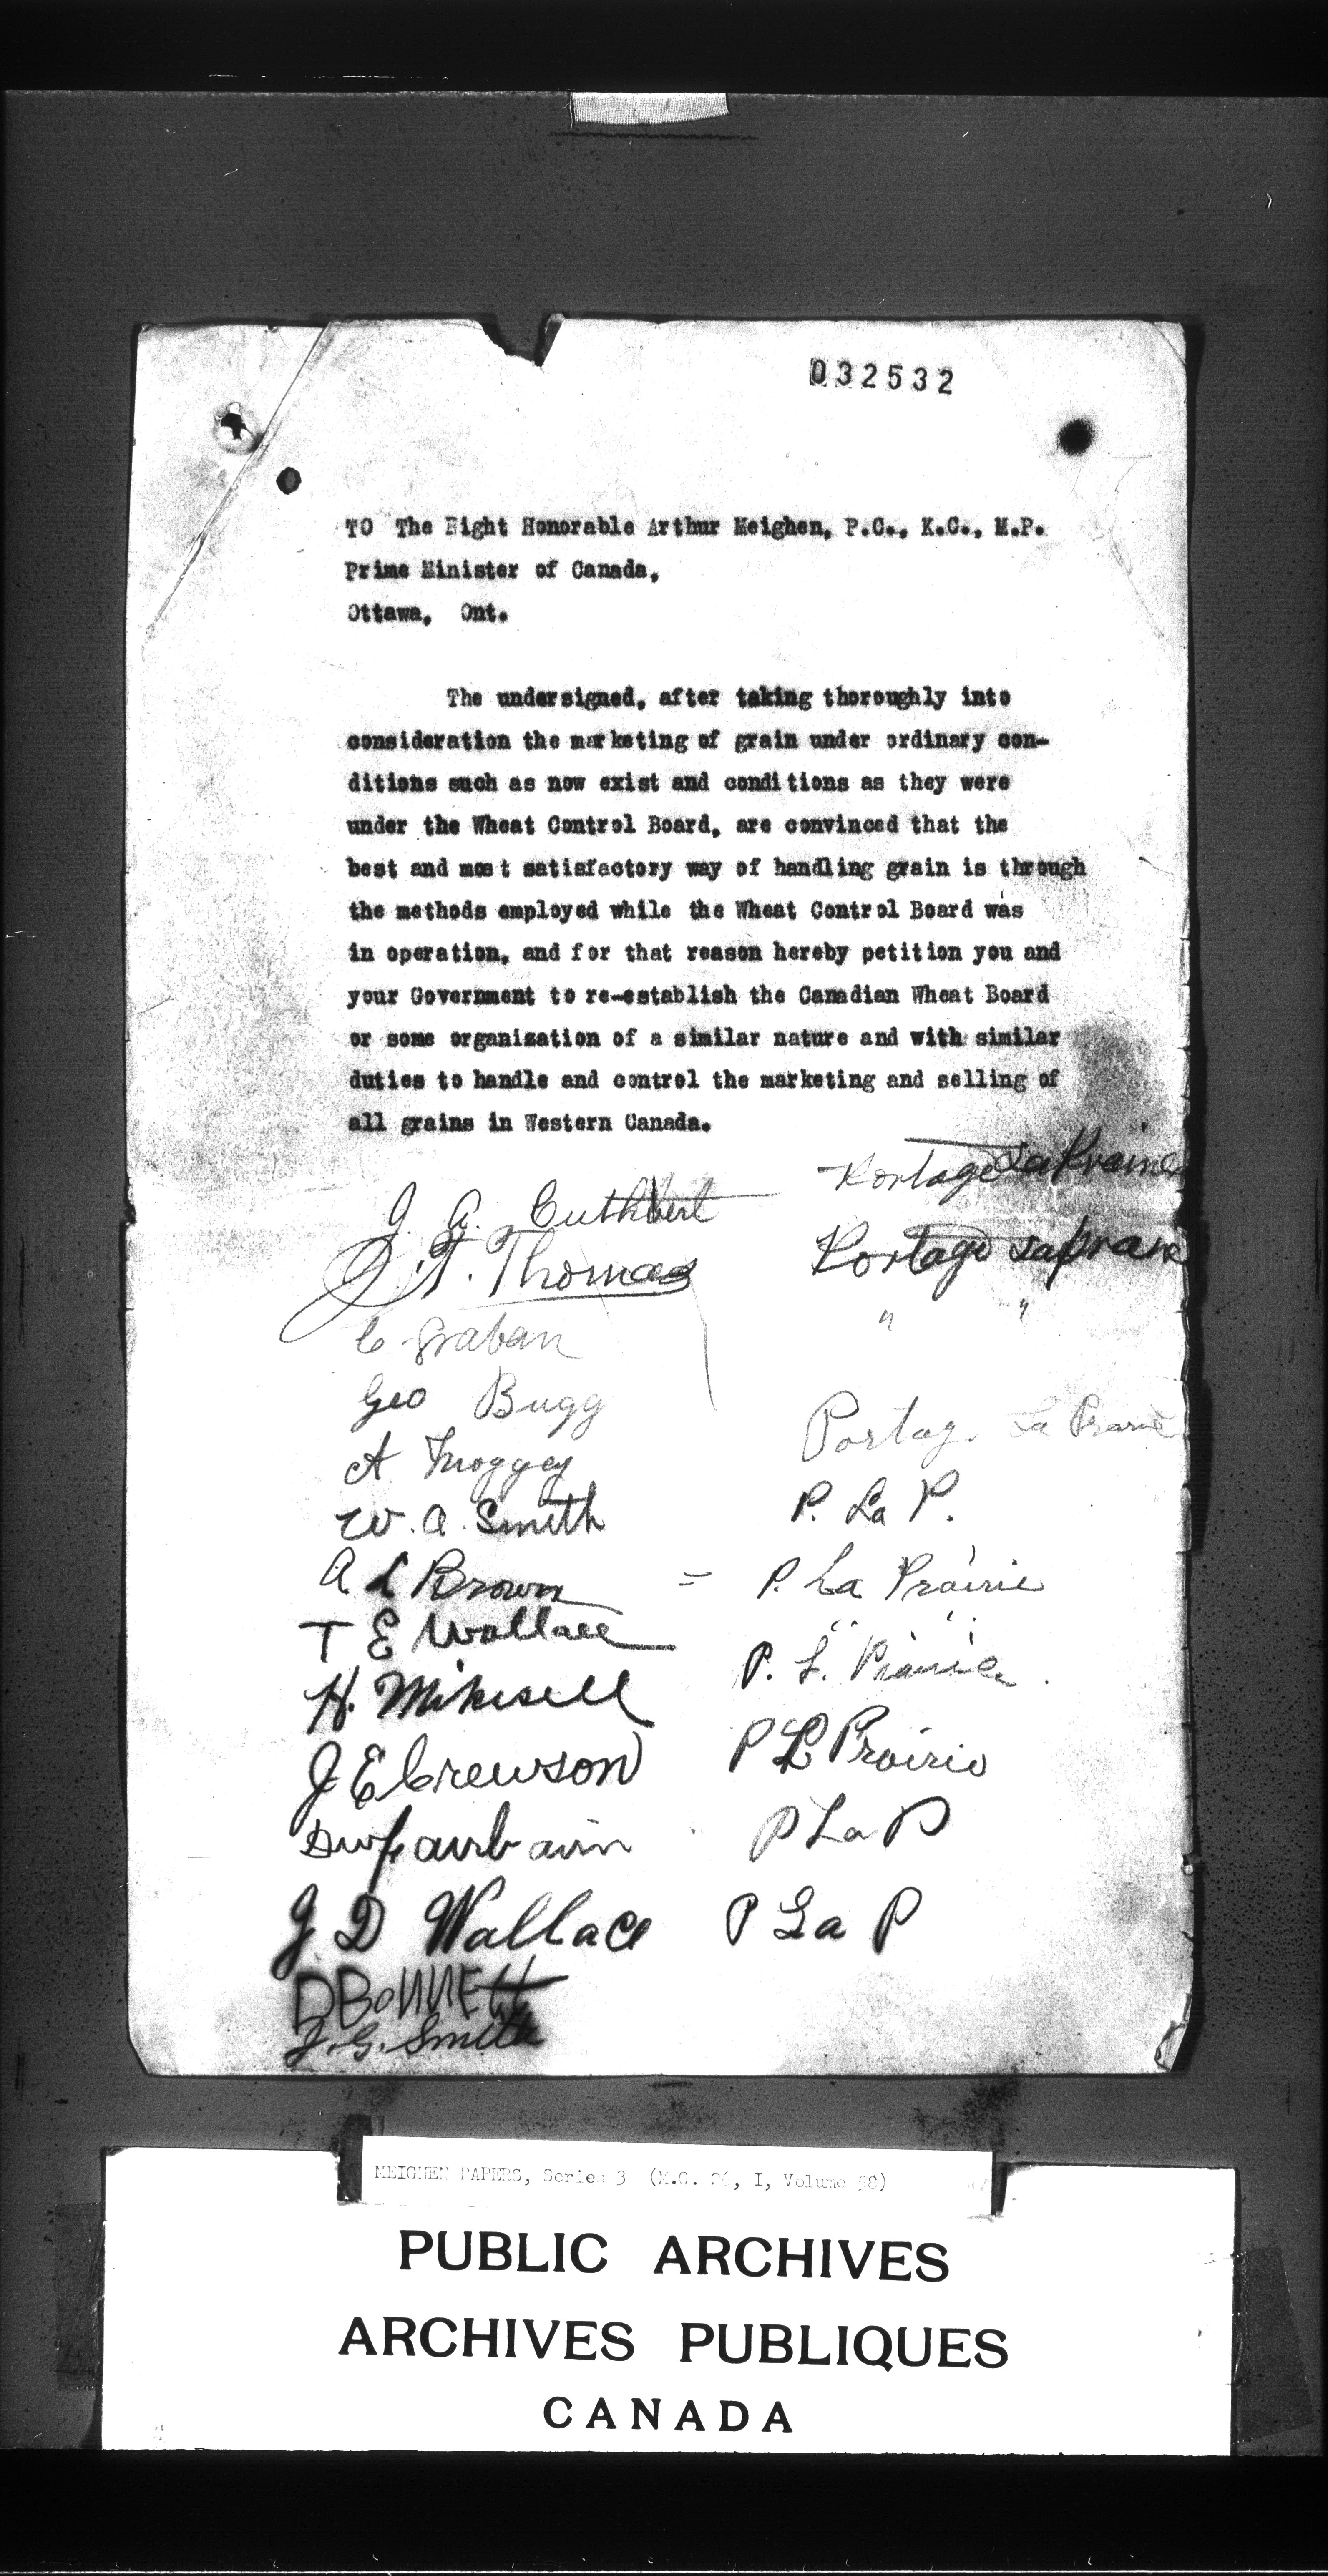 032532
TO The Right Honorable Arthur Meighen, P.C., K.C., M.P.
Prime Minister of Canada,
Ottawa, Ont.
The undersigned, after taking thoroughly into
consideration the marketing of grain under ordinary con-
ditions such as now exist and conditions as they were
under the Wheat Control Board, are convinced that the
best and most satisfactory way of handling grain is through
the methods employed while the Wheat Control Board was
in operation, and for that reason hereby petition you and
your Government to re-establish the Canadian Wheat Board
or some organization of a similar nature and with similar
duties to handle and control the marketing and selling of
all grains in Western Canada.
J. A. Cuthbert Portage La Prairie
J. A. Thomas Portage La Prairie
C Graban " "
Geo Bugg Portag. La Prarie
A Moggey
W. A. Smith P. La P.
A L Brown = P. La Prairie
T E Wallace " "
H. Mikesell P. L. Prairie
J E Crewson P L Prairie
DW Fairbairn P La P
J D Wallace P La P
D BONNETT
J. G. Smith
MEIGHEN PAPERS, Series 3 (M.G. 26, I, Volume 58)
PUBLIC ARCHIVES
ARCHIVES PUBLIQUES
CANADA